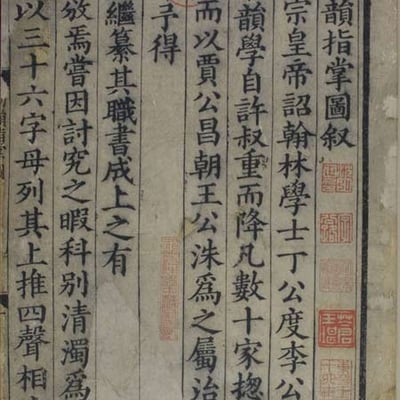 韻指掌圖叙
宗皇帝詔翰林學士丁公度李公
韻學自許叔重而降凡數十家揔
而以賈公昌朝王公洙爲之屬治
予得
繼纂其職書成上之有
攷焉嘗因討究之暇科別清濁爲
以三十六字母列其上推四聲相